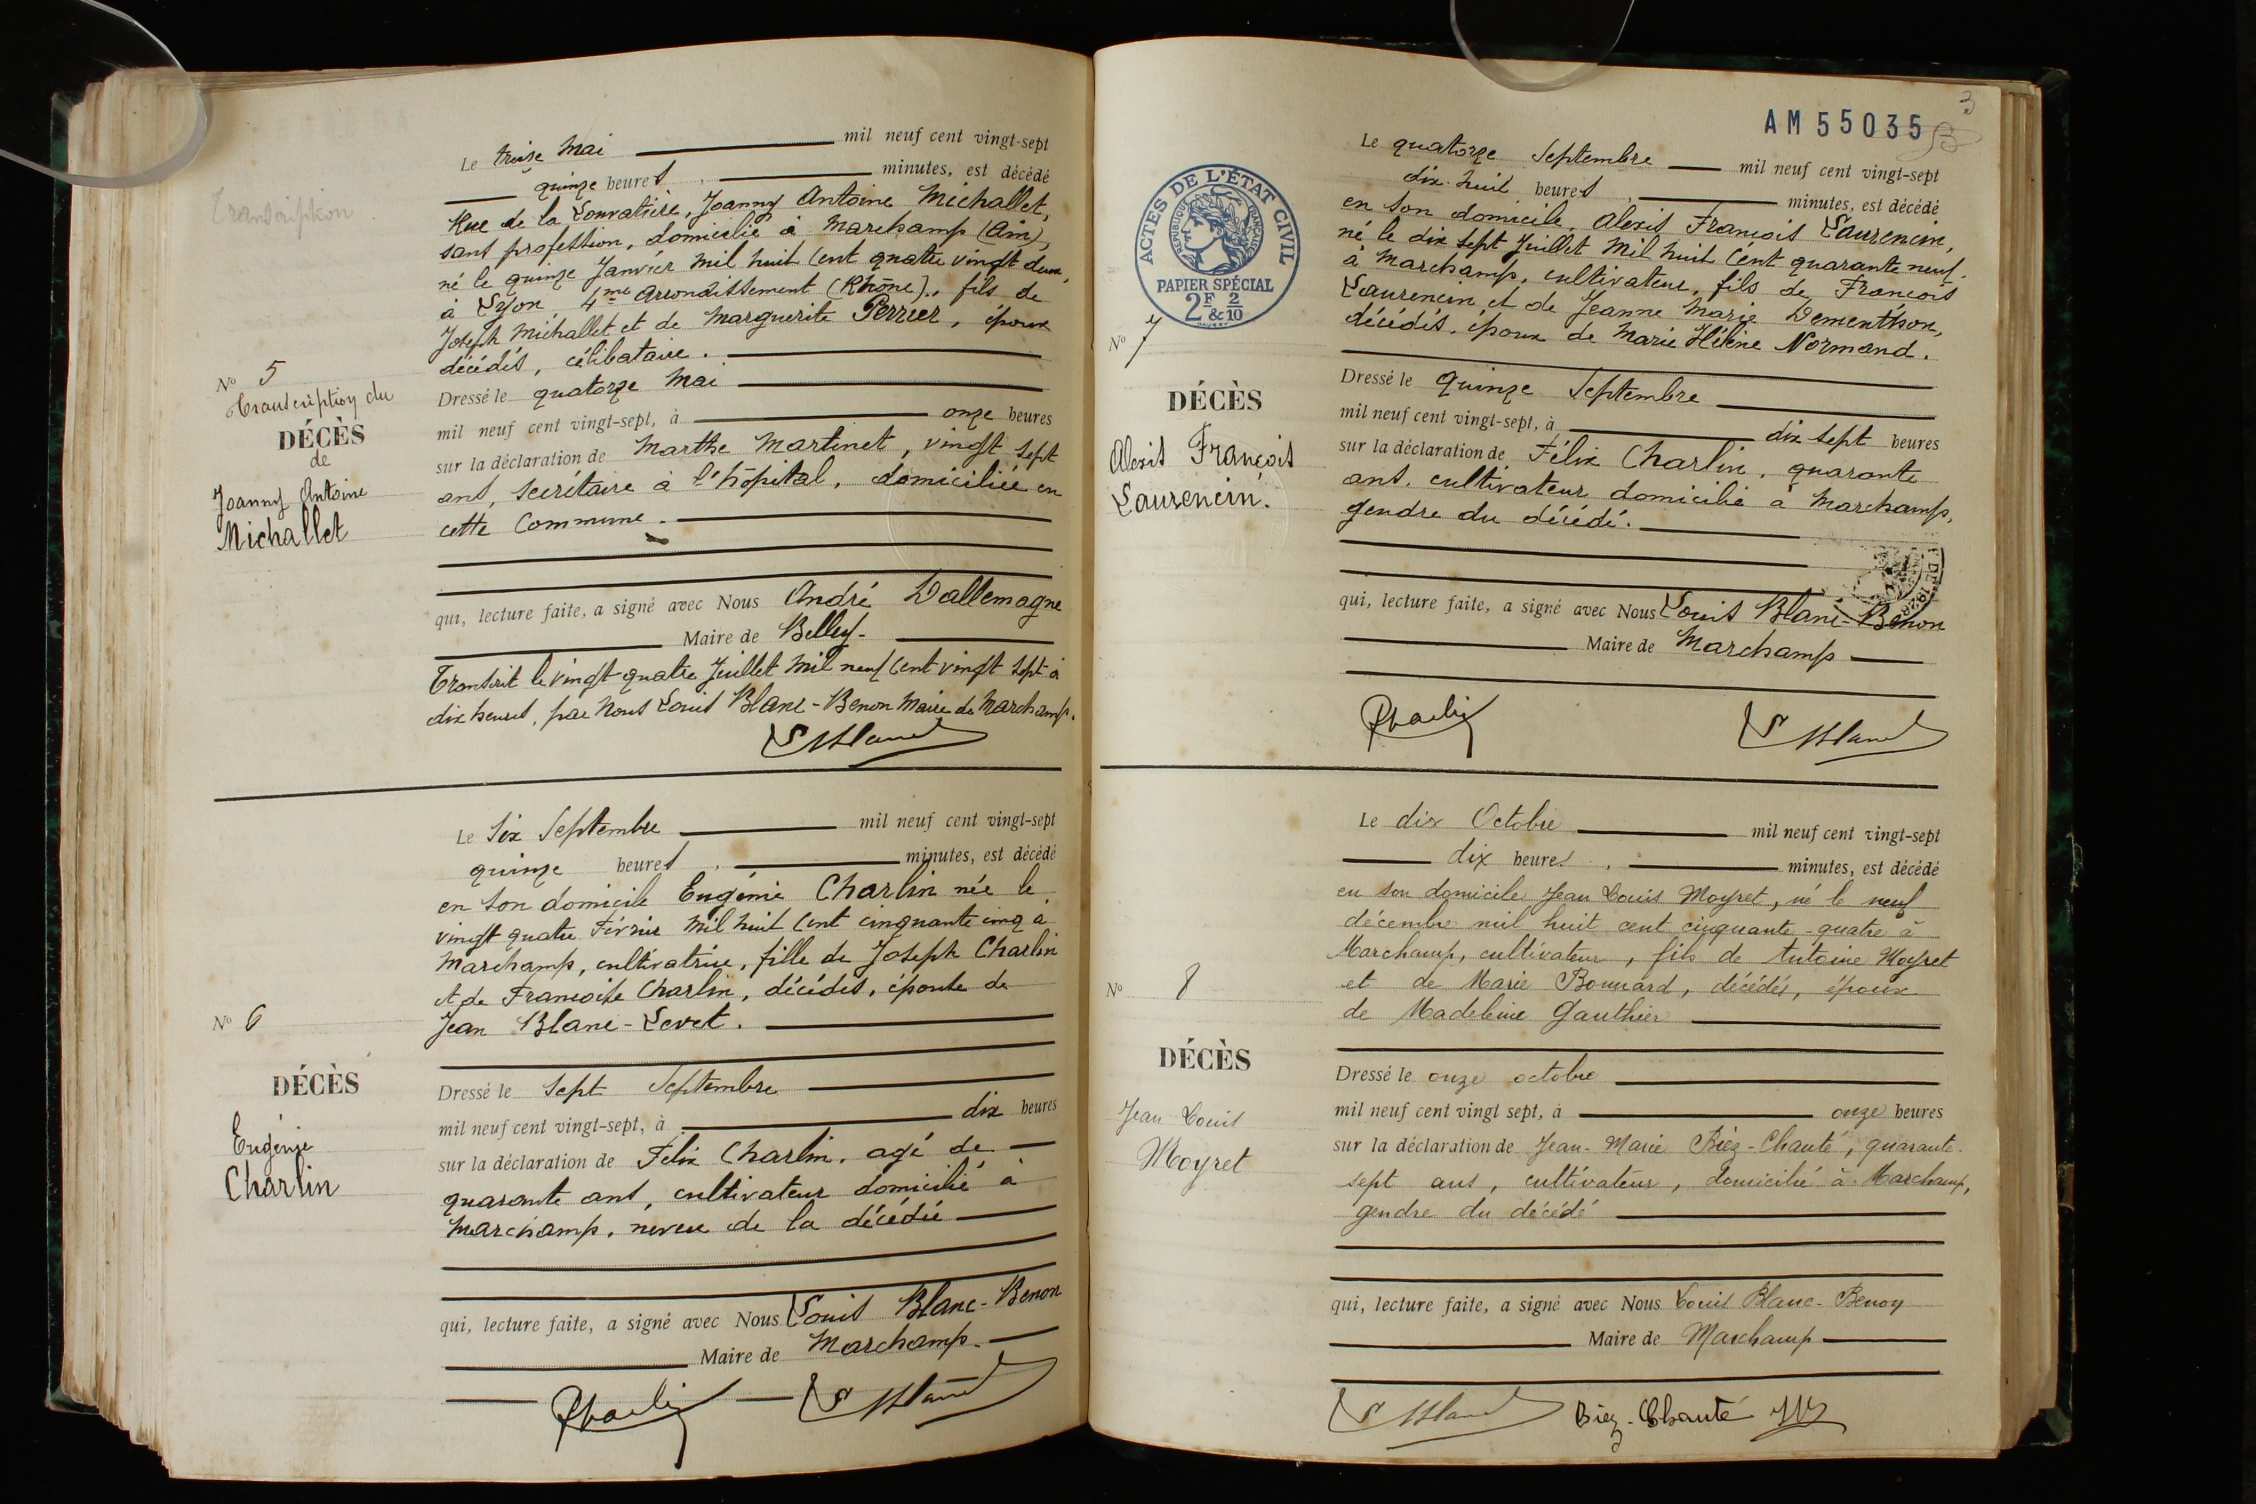 Transcription
Le treize Mai mil neuf cent vingt-sept
quinze heures minutes, est décédé
Rue de la Louvatière, Joanny Antoine Michallet,
sans profession, domicilié à Marchamp (Ain),
né le quinze Janvier mil huit cent quatre vingt deux,
à Lyon 4me arrondissement (Rhône), fils de
Joseph Michallet et de Marguerite Perrier, époux
décédés, célibataire.
Dressé le quatorze Mai
mil neuf cent vingt-sept, à onze heures
sur la déclaration de Marthe Martinet, vingt sept
ans, secrétaire à l'hôpital, domiciliée en
cette Commune.
qui, lecture faite, a signé avec Nous André Dallemagne
Maire de Belley.
Transcrit le vingt-quatre Juillet mil neuf cent vingt sept à
dix heures, par Nous Louis Blanc-Benon Maire de Marchamp.
L Blanc
No 5
Transcription du
DÉCÈS
de
Joanny Antoine
Michallet
Le six Septembre mil neuf cent vingt-sept
quinze heures minutes, est décédé
en son domicile Eugénie Charlin née le
vingt quatre Février mil huit cent cinquante cinq à
Marchamp, cultivatrice, fille de Joseph Charlin
et de Françoise Charlin, décédés, épouse de
Jean Blanc-Levet.
Dressé le sept Septembre
mil neuf cent vingt-sept, à dix heures
sur la déclaration de Félix Charlin, agé de
quarante ans, cultivateur domicilié à
Marchamp, neveu de la décédée
qui, lecture faite, a signé avec Nous Louis Blanc-Benon
Maire de Marchamp.
Charlin L Blanc
No 6
DÉCÈS
Eugénie
Charlin
AM 55035
3
Le quatorze Septembre mil neuf cent vingt-sept
dix-huit heures minutes, est décédé
en son domicile, Alexis François Laurencin,
né le dix sept Juillet mil huit cent quarante neuf.
à Marchamp, cultivateur, fils de François
Laurencin et de Jeanne Marie Dementhon,
décédés, époux de Marie Hélène Normand.
Dressé le quinze Septembre
mil neuf cent vingt-sept, à dix sept heures
sur la déclaration de Félix Charlin, quarante
ans, cultivateur domicilié à Marchamp,
gendre du décédé.
qui, lecture faite, a signé avec Nous Louis Blanc-Benon
Maire de Marchamp
Charlin L Blanc
ACTES DE L'ÉTAT CIVIL
RÉPUBLIQUE FRANÇAISE
PAPIER SPÉCIAL
2F & 2/10
No 7
DÉCÈS
Alexis François
Laurencin.
Le dix Octobre mil neuf cent vingt-sept
dix heures minutes, est décédé
en son domicile Jean Louis Moyret, né le neuf
décembre mil huit cent cinquante-quatre à
Marchamp, cultivateur, fils de Antoine Moyret
et de Marie Bonnard, décédés, époux
de Madeleine Gauthier
Dressé le onze octobre
mil neuf cent vingt sept, à onze heures
sur la déclaration de Jean-Marie Bièz-Chanté, quarante-
sept ans, cultivateur, domicilié à Marchamp,
gendre du décédé
qui, lecture faite, a signé avec Nous Louis Blanc-Benon
Maire de Marchamp
L Blanc Biez-Chanté JM
No 8
DÉCÈS
Jean Louis
Moyret